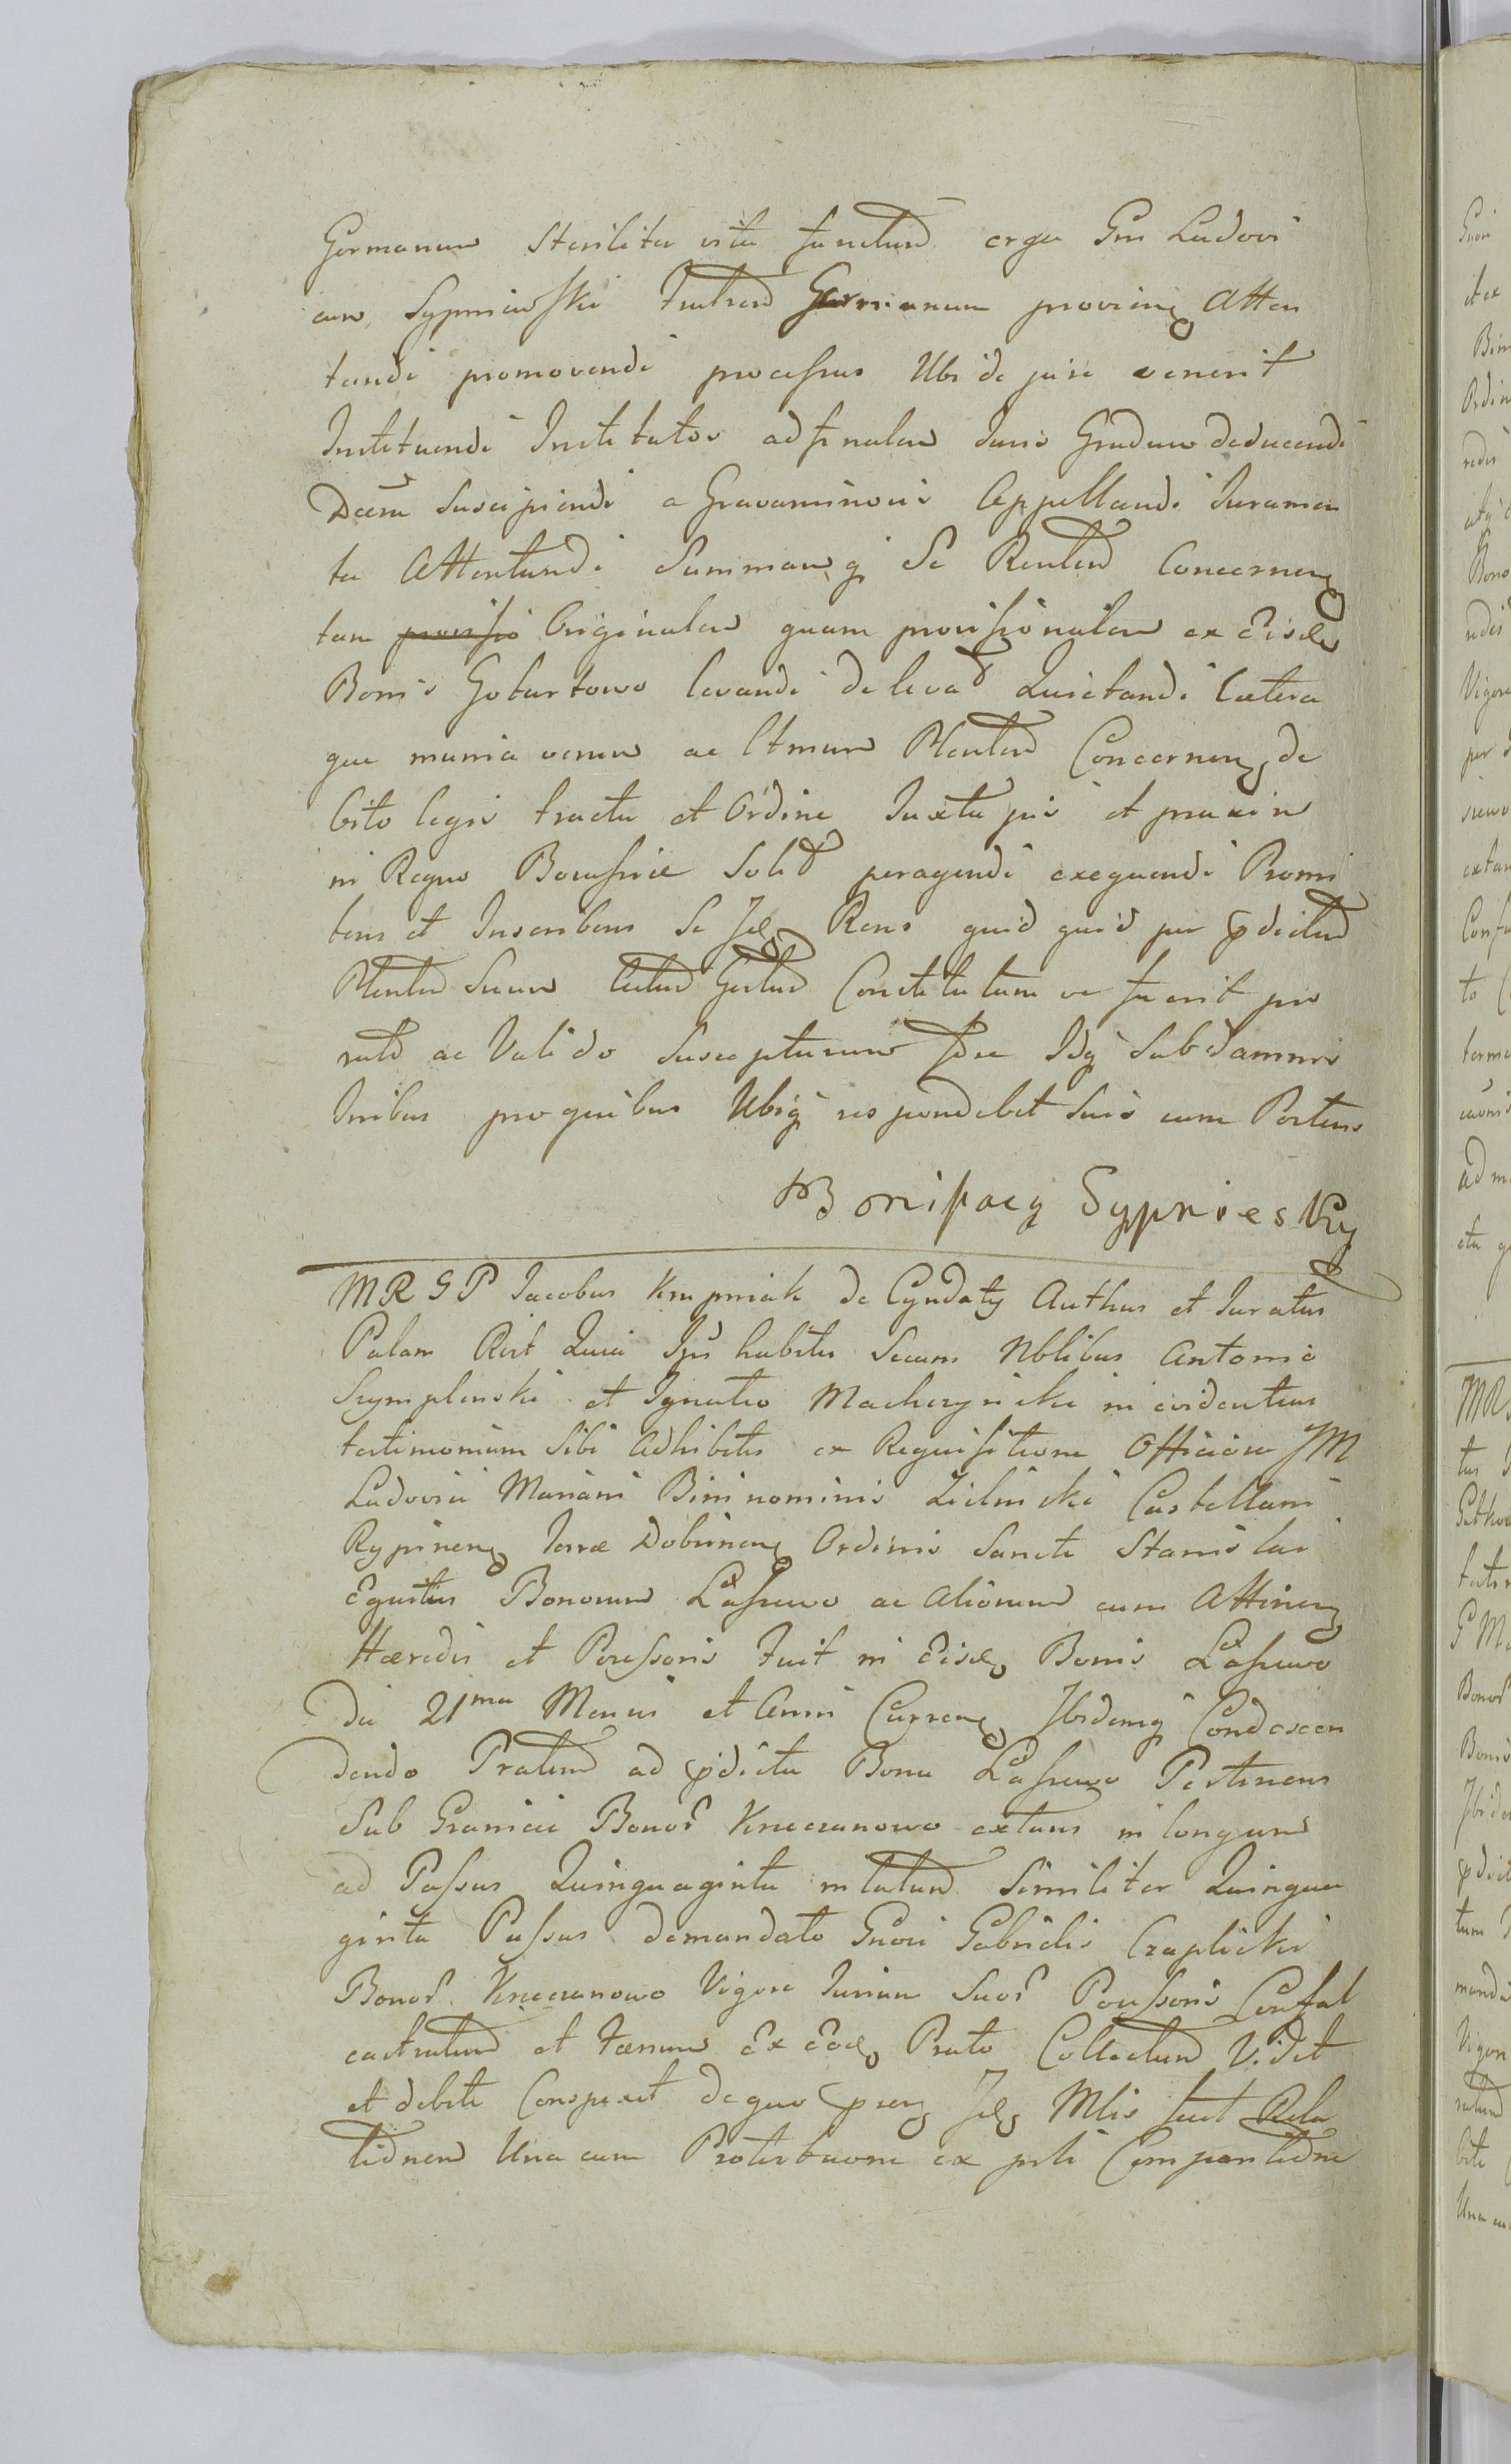 Germanum Steriliter vita functum erga Gm Ludovi
cum Sypniewski Fratrem Germanum provenien Atten
tandi promovendi processus Ubi de jure venerit
Instituendi Institutos ad finalem Juris Gradum deducendi
Decreta Suscipiendi a Gravaminosis Appellandi Juramen
ta Attentandi Summamq Se Rentem Concernen
tam Originalem quam provisionalem ex Eisdem
Bonis Gotartowo levandi de levat Quietandi Cætera
que munia verum ac ltmum Plentem Concernen de
bito legis tractu et Ordine Juxta jus et praxim
in Regno Borussiæ Solit peragendi exequendi Promi
tens et Inscribens Se Idem Rens quid quid per pdictum
Plentem Suum Actum Gestum Constitutum ve fuerit pro
rato ac Valido Suscepturum fore Idq Sub damnis
Inibus pro quibus Ubiq respondebit Suis cum Poteris
Bonifacy Sypniesky
MRGP Jacobus Krupniak de Cyndaty Authus et Juratus
Palam Rcit Quia Ips habitis Secum Nblibus Antonio
Szymplinski et Ignatio Macherzynski in evidentius
testimonium Sibi Adhibitis ex Requisitione Officiosa JM
Ludovici Mariani Bini nominis Zielinski Castellani
Rypinen Terræ Dobrinen Ordinis Sancti Stanislai
Equitis Bonorum Łaszewo ac Aliorum cum Attinen
Hæredis et Possessoris Fuit in Eisdem Bonis Łaszewo
Die 21ma Mensis et Anni Curren Ibidemq Condescen
dendo Pratum ad pdicta Bona Łaszewo Pertinens
Sub Granicie Bonor Kneczanowo extans in longum
ad Passus Quinquaginta in latum Similiter Quinqua
ginta Passus demandato Gnosi Gabrielis Czaplicki
Bonor Kneczanowo Vigore Jurium Suor Possessoris Confal
castratum et Fænum Ex Eodem Prato Collectum Vidit
et debite Conspexit de quo pnens Idem Mlis fecit Rela
tionem Una cum Protestatione ex psti Comparitione